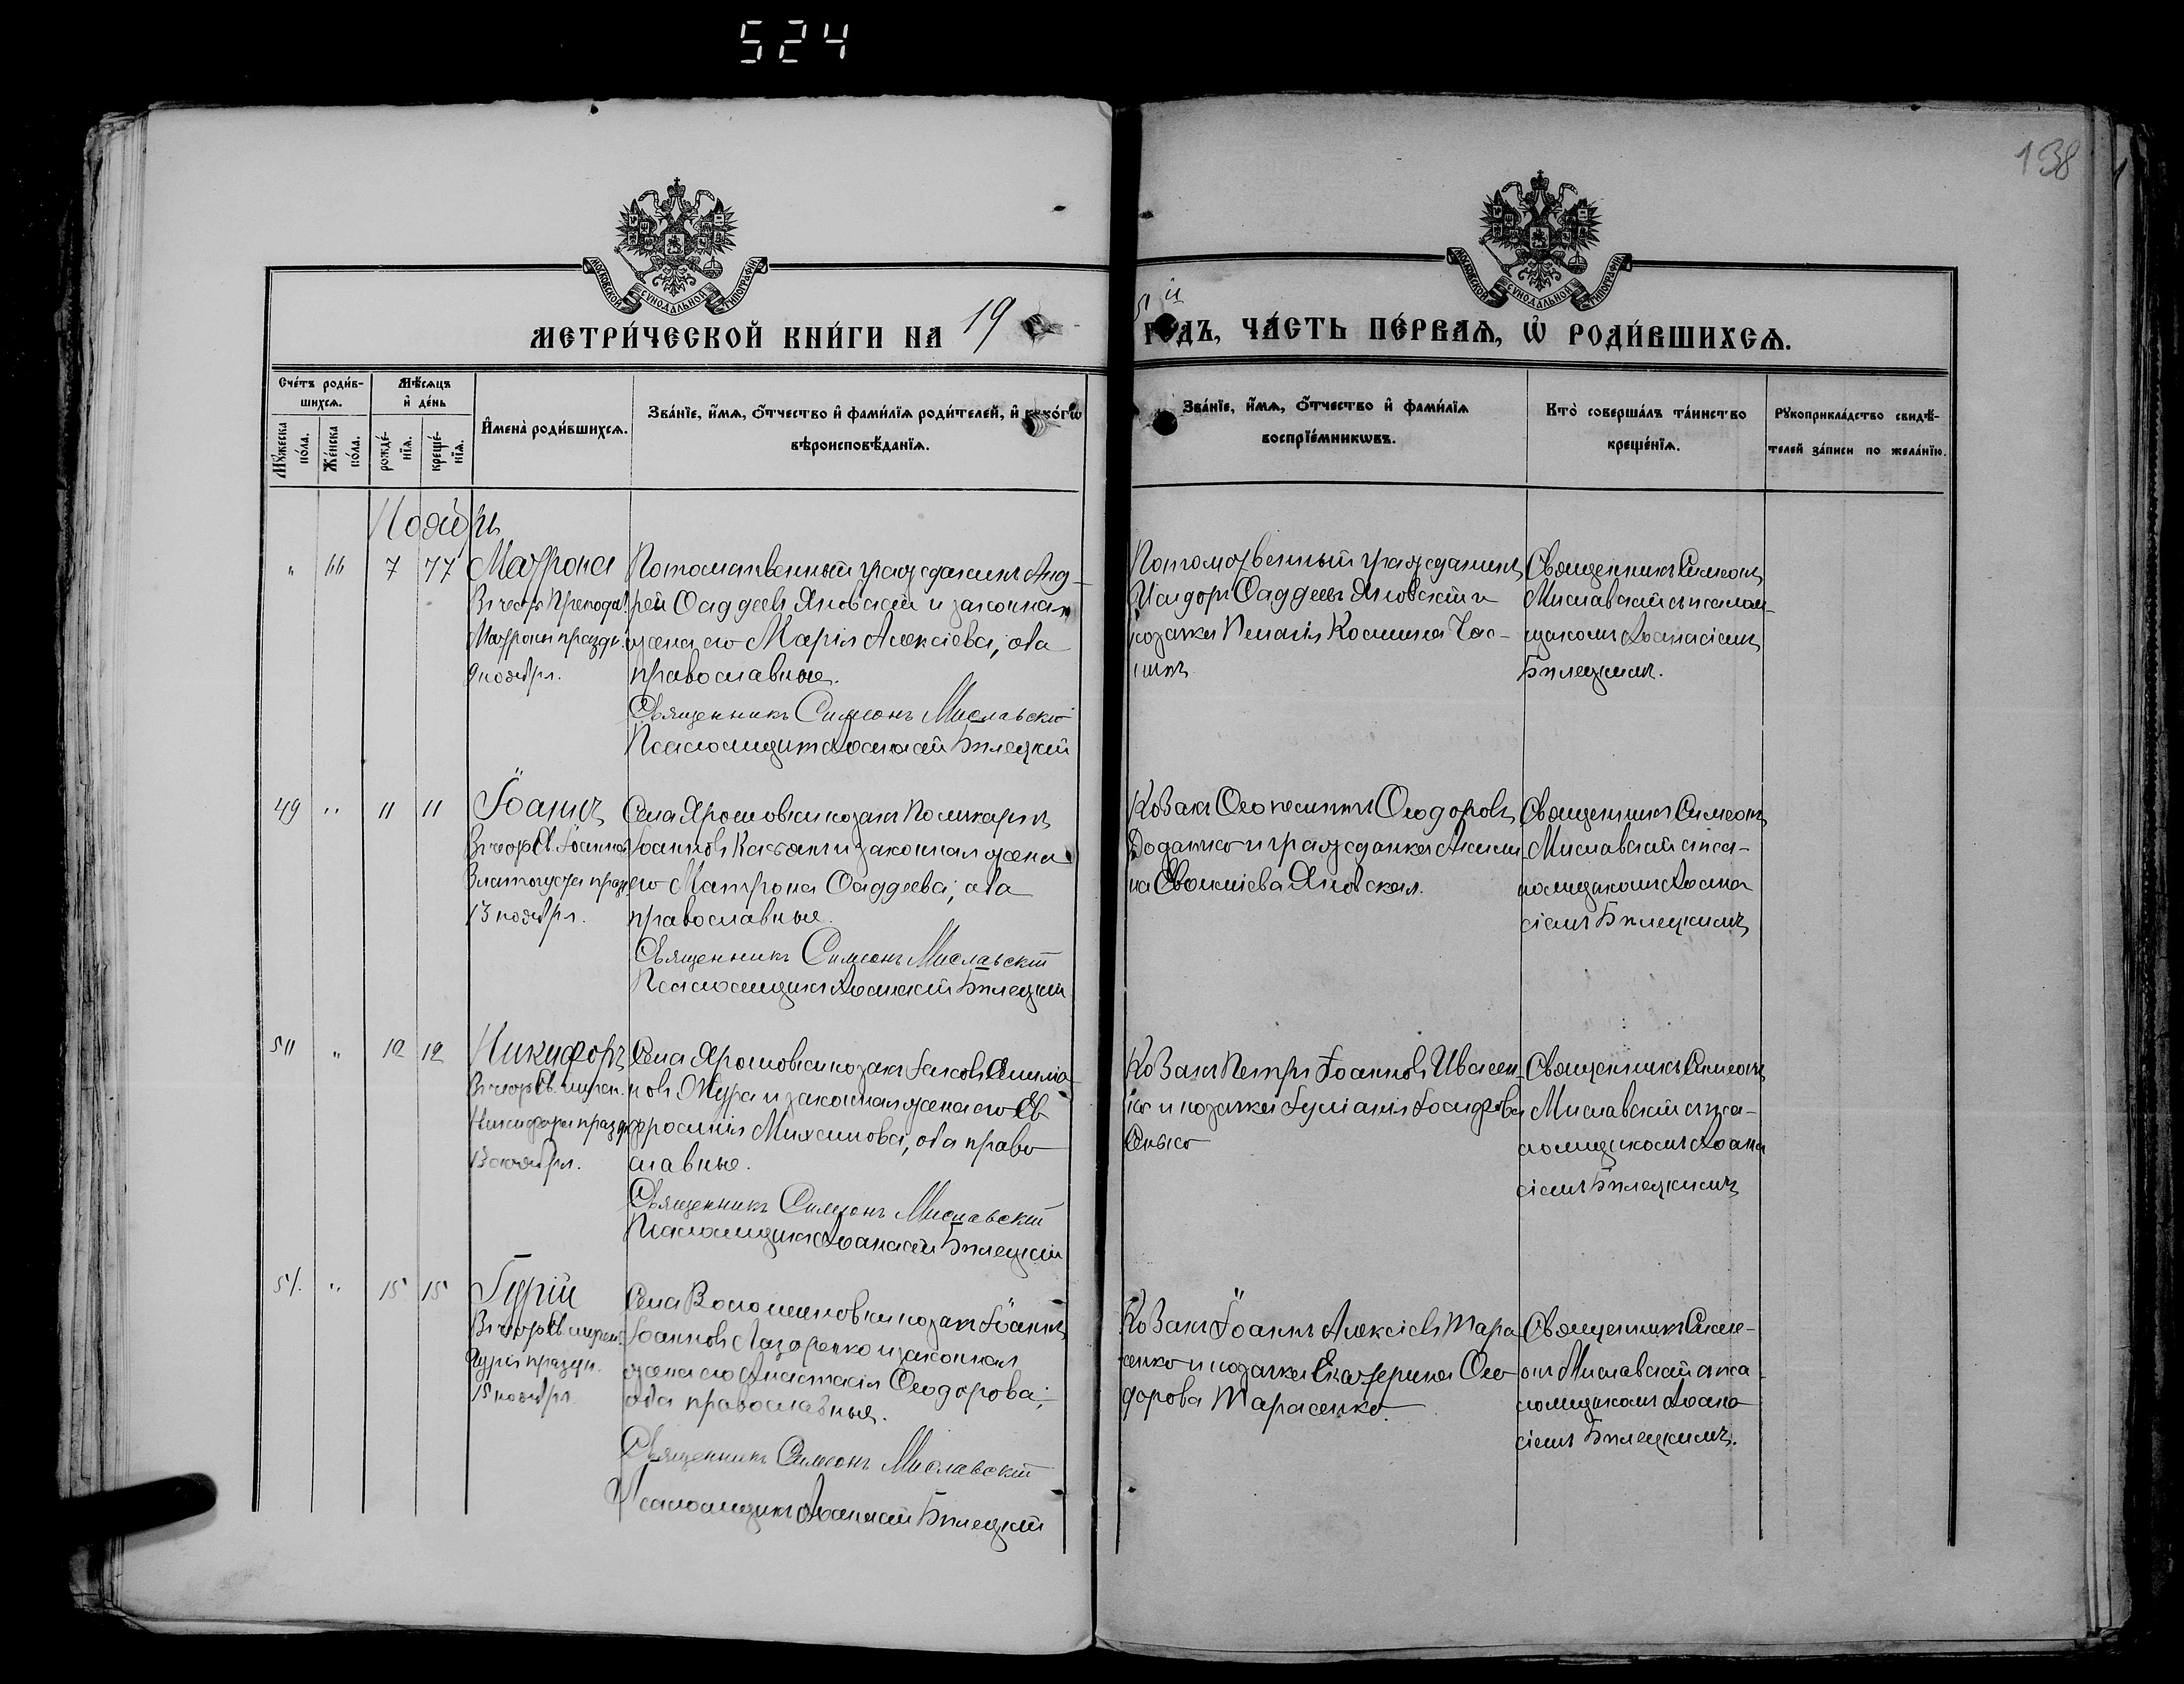 524
138
МОСКОВСКОЙ СѴНОДАЛЬНОЙ ТИПОГРАФІИ
МОСКОВСКОЙ СѴНОДАЛЬНОЙ ТИПОГРАФІИ
МЕТРИ́ЧЕСКОЙ КНИ́ГИ НА 19
5 й ГОДЪ, ЧА́СТЬ ПЕ́РВАѦ, Ѡ҆ РОДИ́ВШИХСѦ.
Сче́тъ роди́в-
шихсѧ.
Мѣ́сѧцъ
и҆ де́нь
Мꙋ́жеска
по́ла.
Же́нска
по́ла.
рожде́-
нїѧ.
креще́-
нїѧ.
И҆мена̀ роди́вшихсѧ.
Зва́нїе, и҆́мѧ, ѻ҆́тчество и҆ фами́лїѧ роди́телей, и҆ како́гѡ
вѣроисповѣ́данїѧ.
Зва́нїе, и҆́мѧ, ѻ҆́тчество и҆ фами́лїѧ
воспрїе́мникѡвъ.
Кто̀ соверша́лъ та́инство
креще́нїѧ.
Рꙋкоприкла́дство свидѣ́-
телей за́писи по жела́нїю.
Ноябрь
" 66 7 77
Матрона
Въ честь Преподоб.
Матроны празд.
9 ноября.
Потомственный гражданинъ Анд-
рей Ѳаддеевъ Яновскій и законная
жена его Марія Алексіева, оба
православные.
Священникъ Симеонъ Миславскій
Псаломщикъ Аѳанасій Бѣлецкій
Потомственный гражданинъ
Исидоръ Ѳаддеевъ Яновскій и
козачка Пелагія Космина Час-
никъ
Священникъ Симеонъ
Миславскій съ псалом-
щикомъ Аѳанасіемъ
Бѣлецкимъ.
49 " 11 11
Іоаннъ
Въ честь Св. Іоанна
Златоуста празд.
13 ноября.
Села Ярошовки козакъ Поликарпъ
Іоанновъ Касьянъ и законная жена
его Матрона Ѳаддеева, оба
православные.
Священникъ Симеонъ Миславскій
Псаломщикъ Аѳанасій Бѣлецкій
Козакъ Ѳеопемптъ Ѳеодоровъ
и гражданка Акили-
на Яновская.
Священникъ Симеонъ
Миславскій съ пса-
ломщикомъ Аѳана
сіемъ Бѣлецкимъ
50 " 12 12
Никифоръ
Въ честь Св. мучен.
Никифора празд.
13 ноября.
Села Ярошовки козакъ Іаковъ
новъ Жура и законная жена его Ев
фросинія Михеимова, оба право
славные.
Священникъ Симеонъ Миславскій
Псаломщикъ Аѳанасій Бѣлецкій
Козакъ Петръ Іоанновъ Ивасен-
ко и козачка Іуліанія Іосифова
Священникъ Симеонъ
Миславскій съ пса-
ломщикомъ Аѳана
сіемъ Бѣлецкимъ
51. " 15 15
Гурій
Въ честь Св. мучен.
Гурія праздн.
15 ноября.
Села Волошиновки козакъ Іоаннъ
Іоанновъ Лазоренко и законная
жена его Анастасія Ѳеодорова;
оба православные.
Священникъ Симеонъ Миславскій
Псаломщикъ Аѳанасій Бѣлецкій
Козакъ Іоаннъ Алексіевъ Тара
сенко и козачка Екатерина Ѳео
дорова Тарасенко.
Священникъ Симе-
онъ Миславскій съ пса
ломщикомъ Аѳана
сіемъ Бѣлецкимъ.